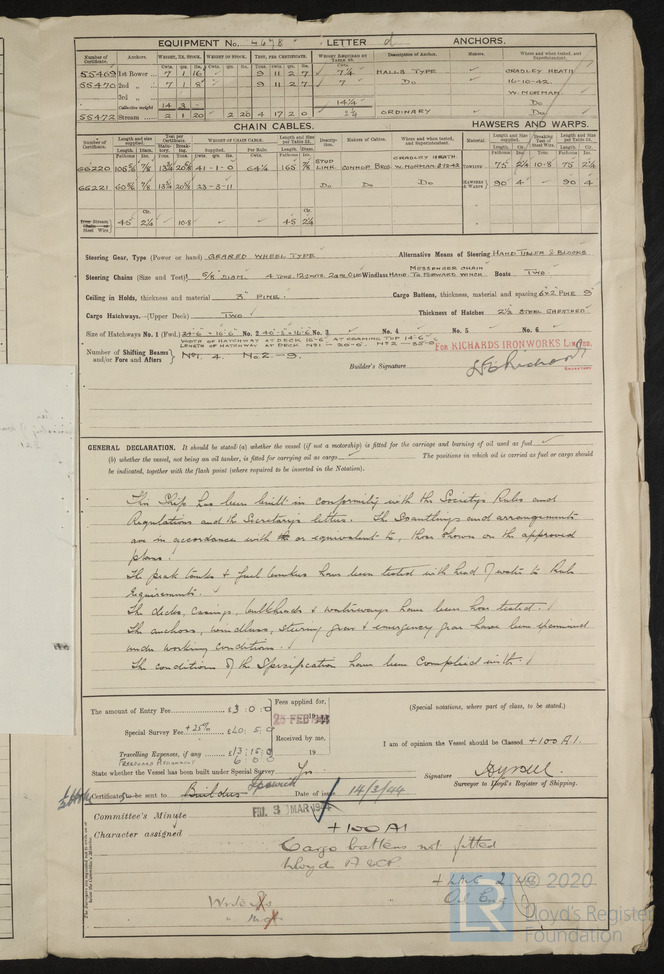 EQUIPMENT No. 4678 LETTER d ANCHORS.
Number of Certificate. Anchors. WEIGHT, EX. STOCK. WEIGHT OF STOCK. TEST, PER CERTIFICATE. WEIGHT REQUIRED BY TABLE 22. Description of Anchor. Makers. Where and when tested, and Superintendent.
55469 1st Bower 7 1 16 9 11 2 7 7¼ HALLS TYPE CRADLEY HEATH
55470 2nd „ 7 1 8 9 11 2 7 7 Do 16-10-42.
3rd „ W. NORMAN.
Collective weight 14 3 - 14¼ Do
55472 Stream 2 1 20 2 20 4 17 2 0 2¼ ORDINARY Do
CHAIN CABLES. HAWSERS AND WARPS.
Number of Certificate. Length and size supplied. Test per Certificate. WEIGHT OF CHAIN CABLE. Length and size per Table 22. Description. Makers of Cables. Where and when tested, and Superintendent. Material. Length and size supplied. Breaking Test of Steel Wire. Length and size per Table 22.
66220 105 7/8 13¾ 20⅝ 41-1-0 64¼ 165 7/8 STUD LINK CONNOP BROS CRADLEY HEATH W. NORMAN TOWLINE 75 2¼ 10·8 75 2¼
66221 60 7/8 13¾ 20⅝ 23-3-11 Do Do Do HAWSERS & WARPS 90 4 90 4
45 2¼ 10·8 45 2¼
Steering Gear, Type (Power or hand) GEARED WHEEL TYPE Alternative Means of Steering HAND TILLER & BLOCKS
Steering Chains (Size and Test) 5/8" DIAM. 4 TONS. 12 CWTS. 2 QRS. 0 LBS Windlass HAND MESSENGER CHAIN TO FORWARD WINCH Boats TWO
Ceiling in Holds, thickness and material 3" PINE. Cargo Battens, thickness, material and spacing 6×2 PINE 9"
Cargo Hatchways.—(Upper Deck) TWO Thickness of Hatches 2½ STEEL SHEATHED
Size of Hatchways No. 1 (Fwd.) 24-6 × 16-6 No. 2 40-3 × 16-6 No. 3 No. 4 No. 5 No. 6
WIDTH OF HATCHWAY AT DECK 16-6 AT COAMING TOP 14-6
LENGTH OF HATCHWAY AT DECK No 1 - 20-6. No 2 - 35-0
Number of Shifting Beams and/or Fore and Afters No 1. 4. No 2. - 9. FOR RICHARDS IRONWORKS LIMITED.
Builder's Signature
SECRETARY
GENERAL DECLARATION. It should be stated (a) whether the vessel (if not a motorship) is fitted for the carriage and burning of oil used as fuel
(b) whether the vessel, not being an oil tanker, is fitted for carrying oil as cargo The positions in which oil is carried as fuel or cargo should
be indicated, together with the flash point (where required to be inserted in the Notation).
This Ship has been built in conformity with the Societys Rules and
Regulations and the Secretarys letters. The Scantlings and arrangements
are in accordance with or equivalent to, those shown on the approved
plans.
The peak tanks & fuel bunkers have been tested with head of water to Rule
requirements.
The decks, casings, bulkheads & waterways have been hose tested.
The anchors, windlass, steering gear & emergency gear have been examined
under working conditions.
The conditions of the Specification have been Complied with.
The amount of Entry Fee £3 : 0 : 0 Fees applied for,
25 FEB 1944
Special Survey Fee +25% £40 : 5 : 0
Received by me,
Travelling Expenses, if any £13 : 15 : 0 19
FREEBOARD ASSIGNMENT 6 0 0
(Special notations, where part of class, to be stated.)
I am of opinion the Vessel should be Classed +100A1.
State whether the Vessel has been built under Special Survey Yes
Signature
Surveyor to Lloyd's Register of Shipping.
Certificate to be sent to Builders Ipswich Date of issue 14/3/44
Committee's Minute FRI. 3 MAR 1944
Character assigned +100A1
Cargo battens not fitted
Lloyd's A & CP.
+ LMC 2 43
Oil Eng
Write
© 2020
LR
Lloyd's Register
Foundation